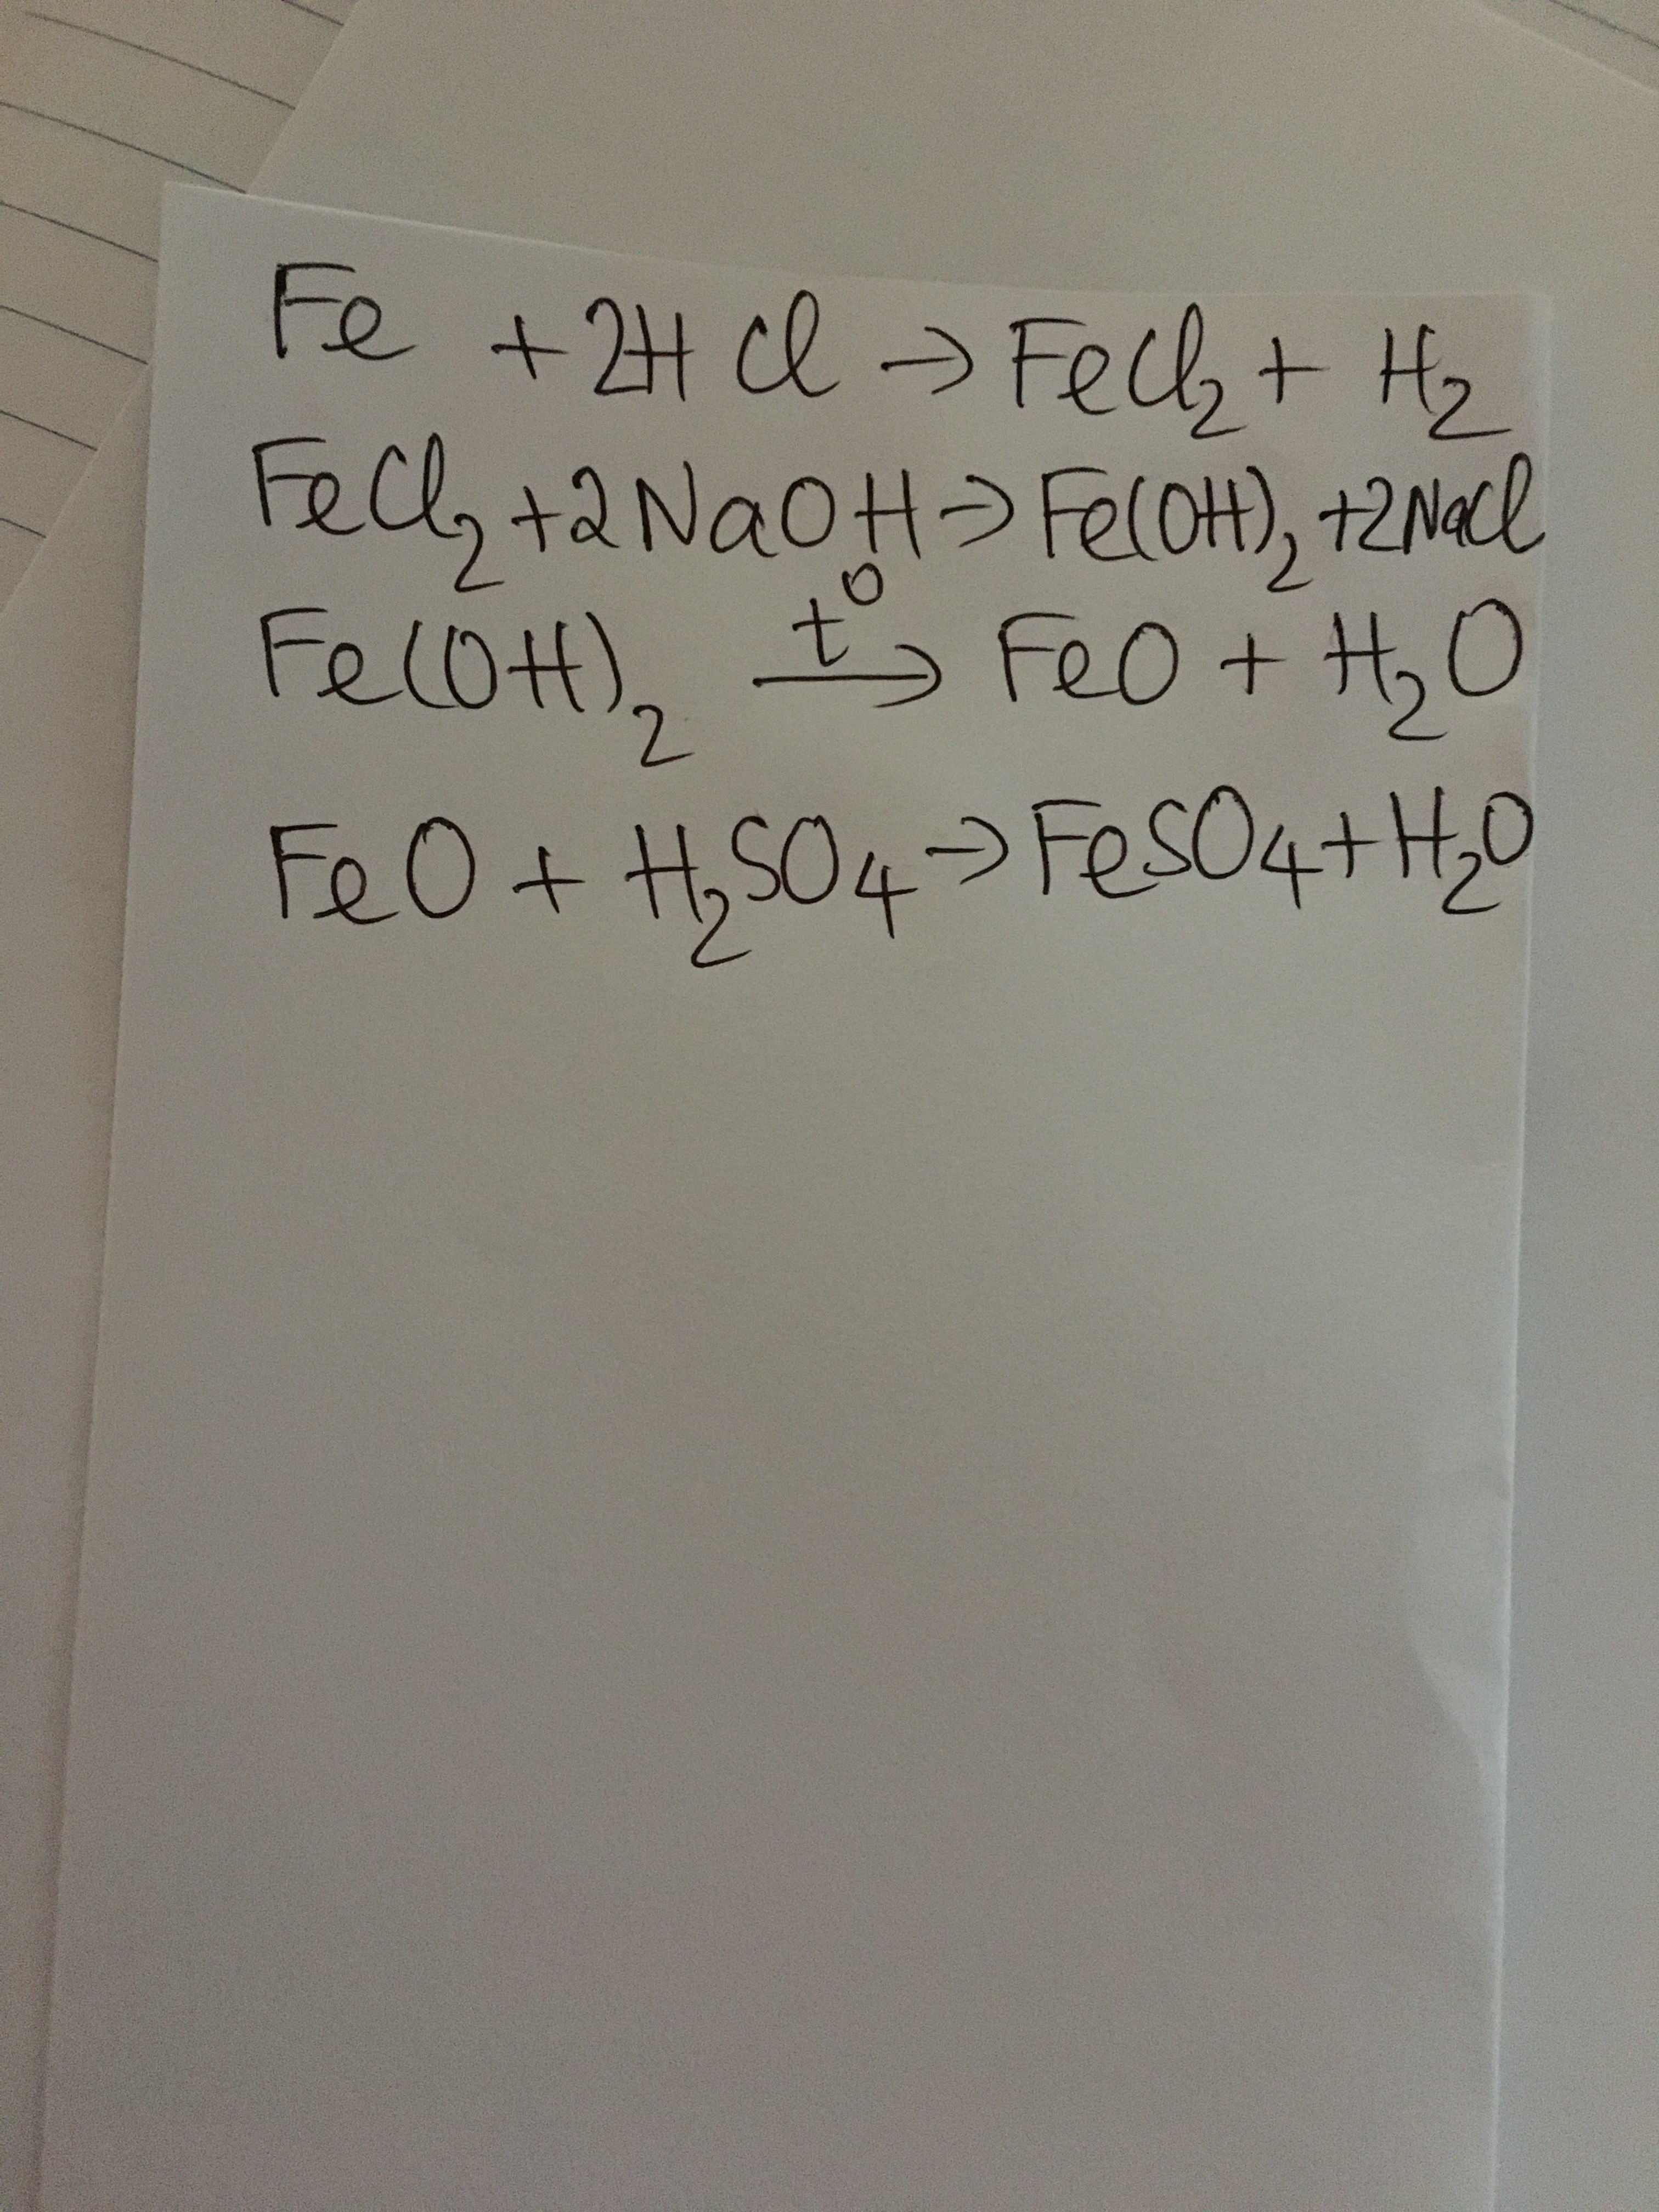 Fe + 2HCl → FeCl₂ + H₂
FeCl₂ + 2NaOH → Fe(OH)₂ + 2NaCl
Fe(OH)₂ t⁰→ FeO + H₂O
FeO + H₂SO₄ → FeSO₄ + H₂O